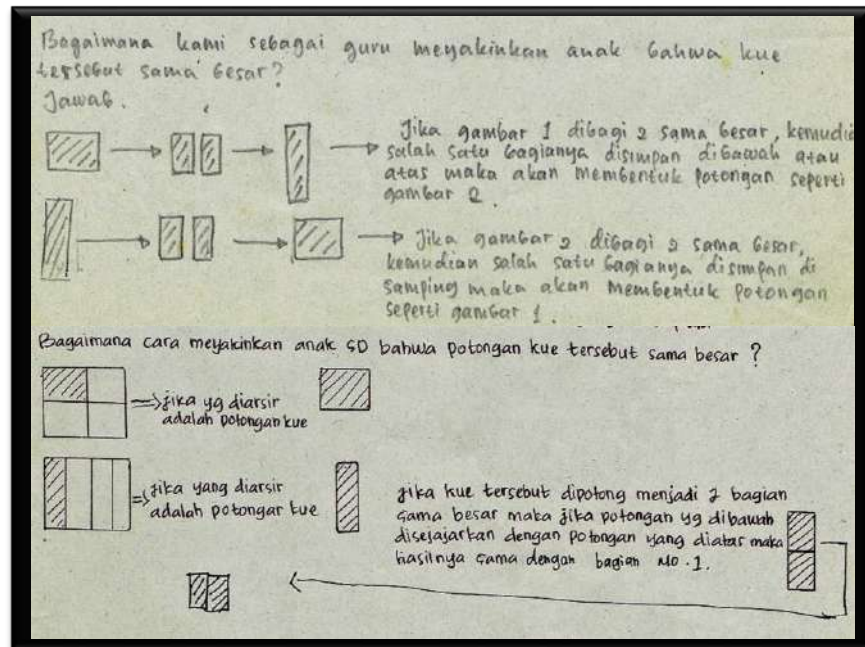 Bagaimana kami sebagai guru meyakinkan anak bahwa kue
tersebut sama besar?
Jawab.
Jika gambar 1 dibagi 2 sama besar, kemudia
salah satu bagianya disimpan dibawah atau
atas maka akan membentuk potongan seperti
gambar 2.
Jika gambar 2 dibagi 2 sama besar,
kemudian salah satu bagianya disimpan di
samping maka akan membentuk potongan
seperti gambar 1.
Bagaimana cara meyakinkan anak SD bahwa potongan kue tersebut sama besar ?
jika yg diarsir
adalah potongan kue
jika yang diarsir
adalah potongar kue
jika kue tersebut dipotong menjadi 2 bagian
sama besar maka jika potongan yg dibawah
disejajarkan dengan potongan yang diatas maka
hasilnya sama dengan bagian no.1.